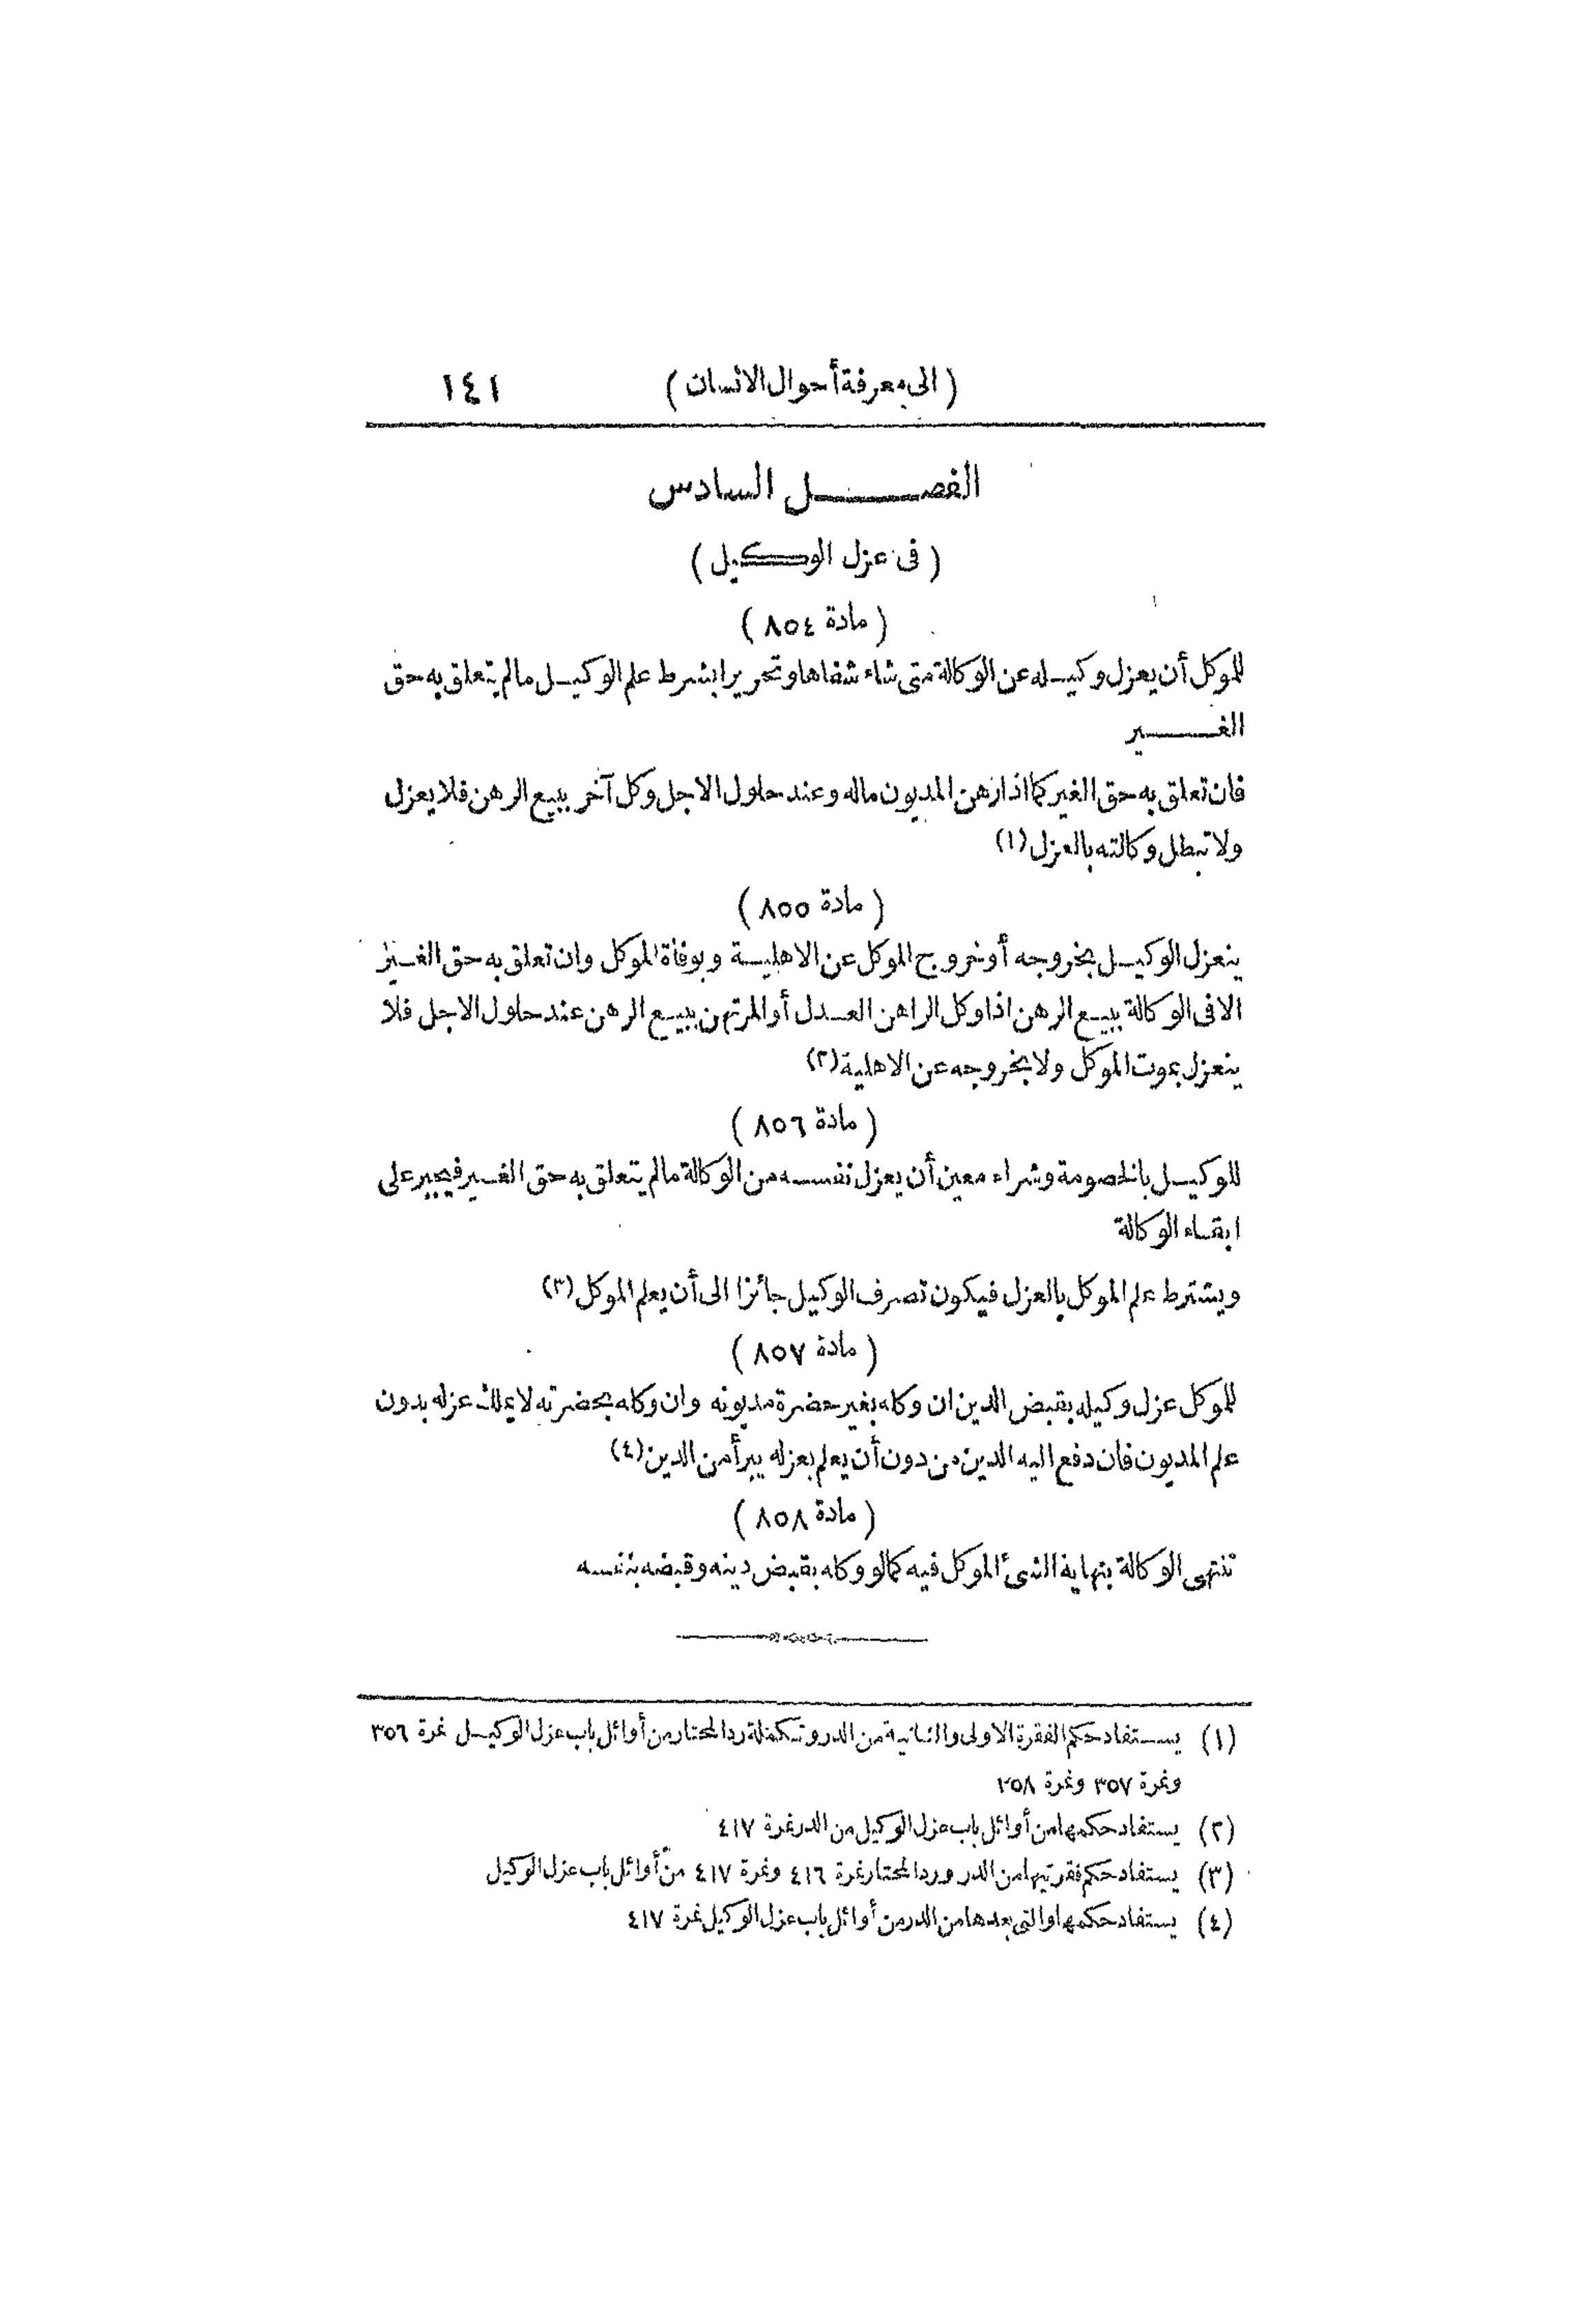 ( الى معرفة أحوال الانسان ) ١٤١
الفصل السادس
( فى عزل الوكيل )
( مادة ٨٥٤ )
للموكل أن يعزل وكيله عن الوكالة متى شاء شفاها وتحريرا بشرط علم الوكيل مالم يتعلق به حق
الغير
فان تعلق به حق الغير كما اذا رهن المديون ماله وعند حلول الاجل وكل آخر ببيع الرهن فلا يعزل
ولا تبطل وكالته بالعزل (١)
( مادة ٨٥٥ )
ينعزل الوكيل بخروجه أو خروج الموكل عن الاهلية وبوفاة الموكل وان تعلق به حق الغير
الا فى الوكالة ببيع الرهن اذا وكل الراهن العدل أو المرتهن ببيع الرهن عند حلول الاجل فلا
ينعزل بموت الموكل ولا بخروجه عن الاهلية (٢)
( مادة ٨٥٦ )
للوكيل بالخصومة وشراء معين أن يعزل نفسه من الوكالة مالم يتعلق به حق الغير فيجبر على
ابقاء الوكالة
ويشترط علم الموكل بالعزل فيكون تصرف الوكيل جائزا الى أن يعلم الموكل (٣)
( مادة ٨٥٧ )
للموكل عزل وكيله بقبض الدين ان وكله بغير حضرة مديونه وان وكله بحضرته لا يملك عزله بدون
علم المديون فان دفع اليه الدين من دون أن يعلم بعزله يبرأ من الدين (٤)
( مادة ٨٥٨ )
تنتهى الوكالة بنهاية الشئ الموكل فيه كما لو وكله بقبض دينه وقبضه بنفسه
(١) يستفاد حكم الفقرة الاولى والثانية من الدر وتكملة رد المحتار من أوائل باب عزل الوكيل نمرة ٣٥٦
ونمرة ٣٥٧ ونمرة ٣٥٨
(٢) يستفاد حكمها من أوائل باب عزل الوكيل من الدر نمرة ٤١٧
(٣) يستفاد حكم فقرتيها من الدر ورد المحتار نمرة ٤١٦ ونمرة ٤١٧ من أوائل باب عزل الوكيل
(٤) يستفاد حكمها والتى بعدها من الدر من أوائل باب عزل الوكيل نمرة ٤١٧